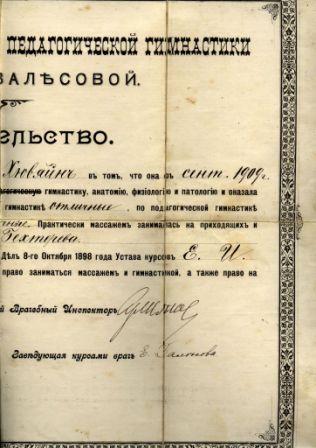 ПЕДАГОГИЧЕСКОЙ ГИМНАСТИКИ
ЗАЛѢСОВОЙ.
ЕЛЬСТВО.
въ томъ, что она съ сент. 1909 г.
гимнастику, анатомію, физіологію и патологію и оказала
гимнастикѣ отличные, по педагогической гимнастикѣ
Практически массажемъ занималась на приходящихъ и
Бехтерева
Дѣлъ 8-го Октября 1898 года Устава курсовъ Е. И.
право заниматься массажемъ и гимнастикой, а также право на
й Врачебный Инспекторъ
Завѣдующая курсами врачъ Е. Залѣсова